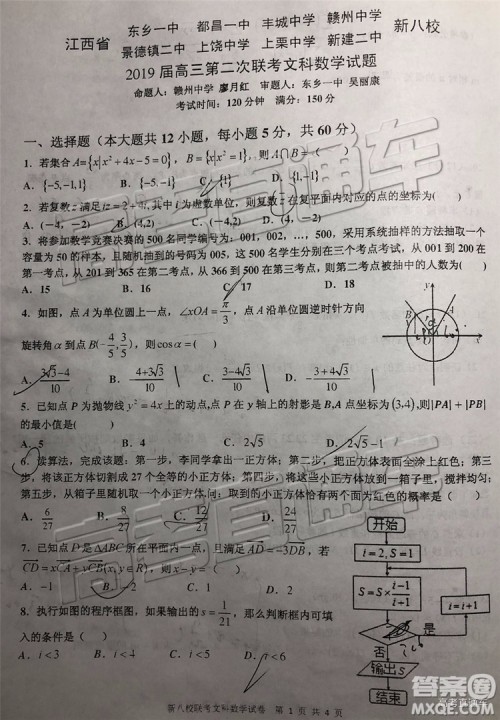 江西省 东乡一中 都昌一中 丰城中学 赣州中学 新八校
景德镇二中 上饶中学 上栗中学 新建二中
2019 届高三第二次联考文科数学试题
命题人：赣州中学 廖月红 审题人：东乡一中 吴丽康
考试时间：120 分钟 满分：150 分
一、选择题（本大题共 12 小题，每小题 5 分，共 60 分）
1. 若集合 A={x|x²+4x-5=0}，B={x|x²=1}，则 A∩B=( )
A. {-5,-1,1} B. {-5,1} C. D. {1}
2. 若复数 z 满足 iz=2+4i，其中 i 为虚数单位，则复数 z 在复平面内对应的点的坐标为( )
A.（-4，-2） B.（-4,2） C.（4,2） D.（4，-2）
3. 将参加数学竞赛决赛的 500 名同学编号为：001，002，…，500，采用系统抽样的方法抽取一个
容量为 50 的样本，且随机抽到的号码为 003，这 500 名学生分别在三个考点考试，从 001 到 200 在
第一考点，从 201 到 365 在第二考点，从 366 到 500 在第三考点，则第二考点被抽中的人数为( )
A. 15 B. 16 C. 17 D. 18
4. 如图，点 A 为单位圆上一点，∠xOA=π/3，点 A 沿单位圆逆时针方向
旋转角 α 到点 B(-4/5, 3/5)，则 cosα=( )
A. (3√3-4)/10 B. -(4+3√3)/10 C. (3-4√3)/10 D. -(3+4√3)/10
5. 已知点 P 为抛物线 y²=4x 上的动点，点 P 在 y 轴上的射影是 B，A 点坐标为 (3,4)，则 |PA|+|PB|
的最小值是( )
A. 5 B. 4 C. 2√5 D. 2√5-1
6. 读算法，完成该题：第一步，李同学拿出一正方体；第二步，把正方体表面全涂上红色；第三
步，将该正方体切割成 27 个全等的小正方体；第四步，将这些小正方体放到一箱子里，搅拌均匀；
第五步，从箱子里随机取一个小正方体。问：取到的小正方体恰有两个面为红色的概率是（ ）
A. 6/27 B. 8/27 C. 12/27 D.
7. 已知点 D 是 △ABC 所在平面内一点，且满足 AD=-3DB，若
CD=xCA+yCB(x,y∈R)，则 x-y=( )
A. -1 B. -2 C. D.
8. 执行如图的程序框图，如果输出的 s=1/21，那么判断框内可填
入的条件是（ ）
A. i<3 B. i<4 D. i<6
开始
i=2,S=1
S=S×(i-1)/(i+1)
i=i+1
是
否
输出S
结束
新八校联考文科数学试卷 第 1 页 共 4 页